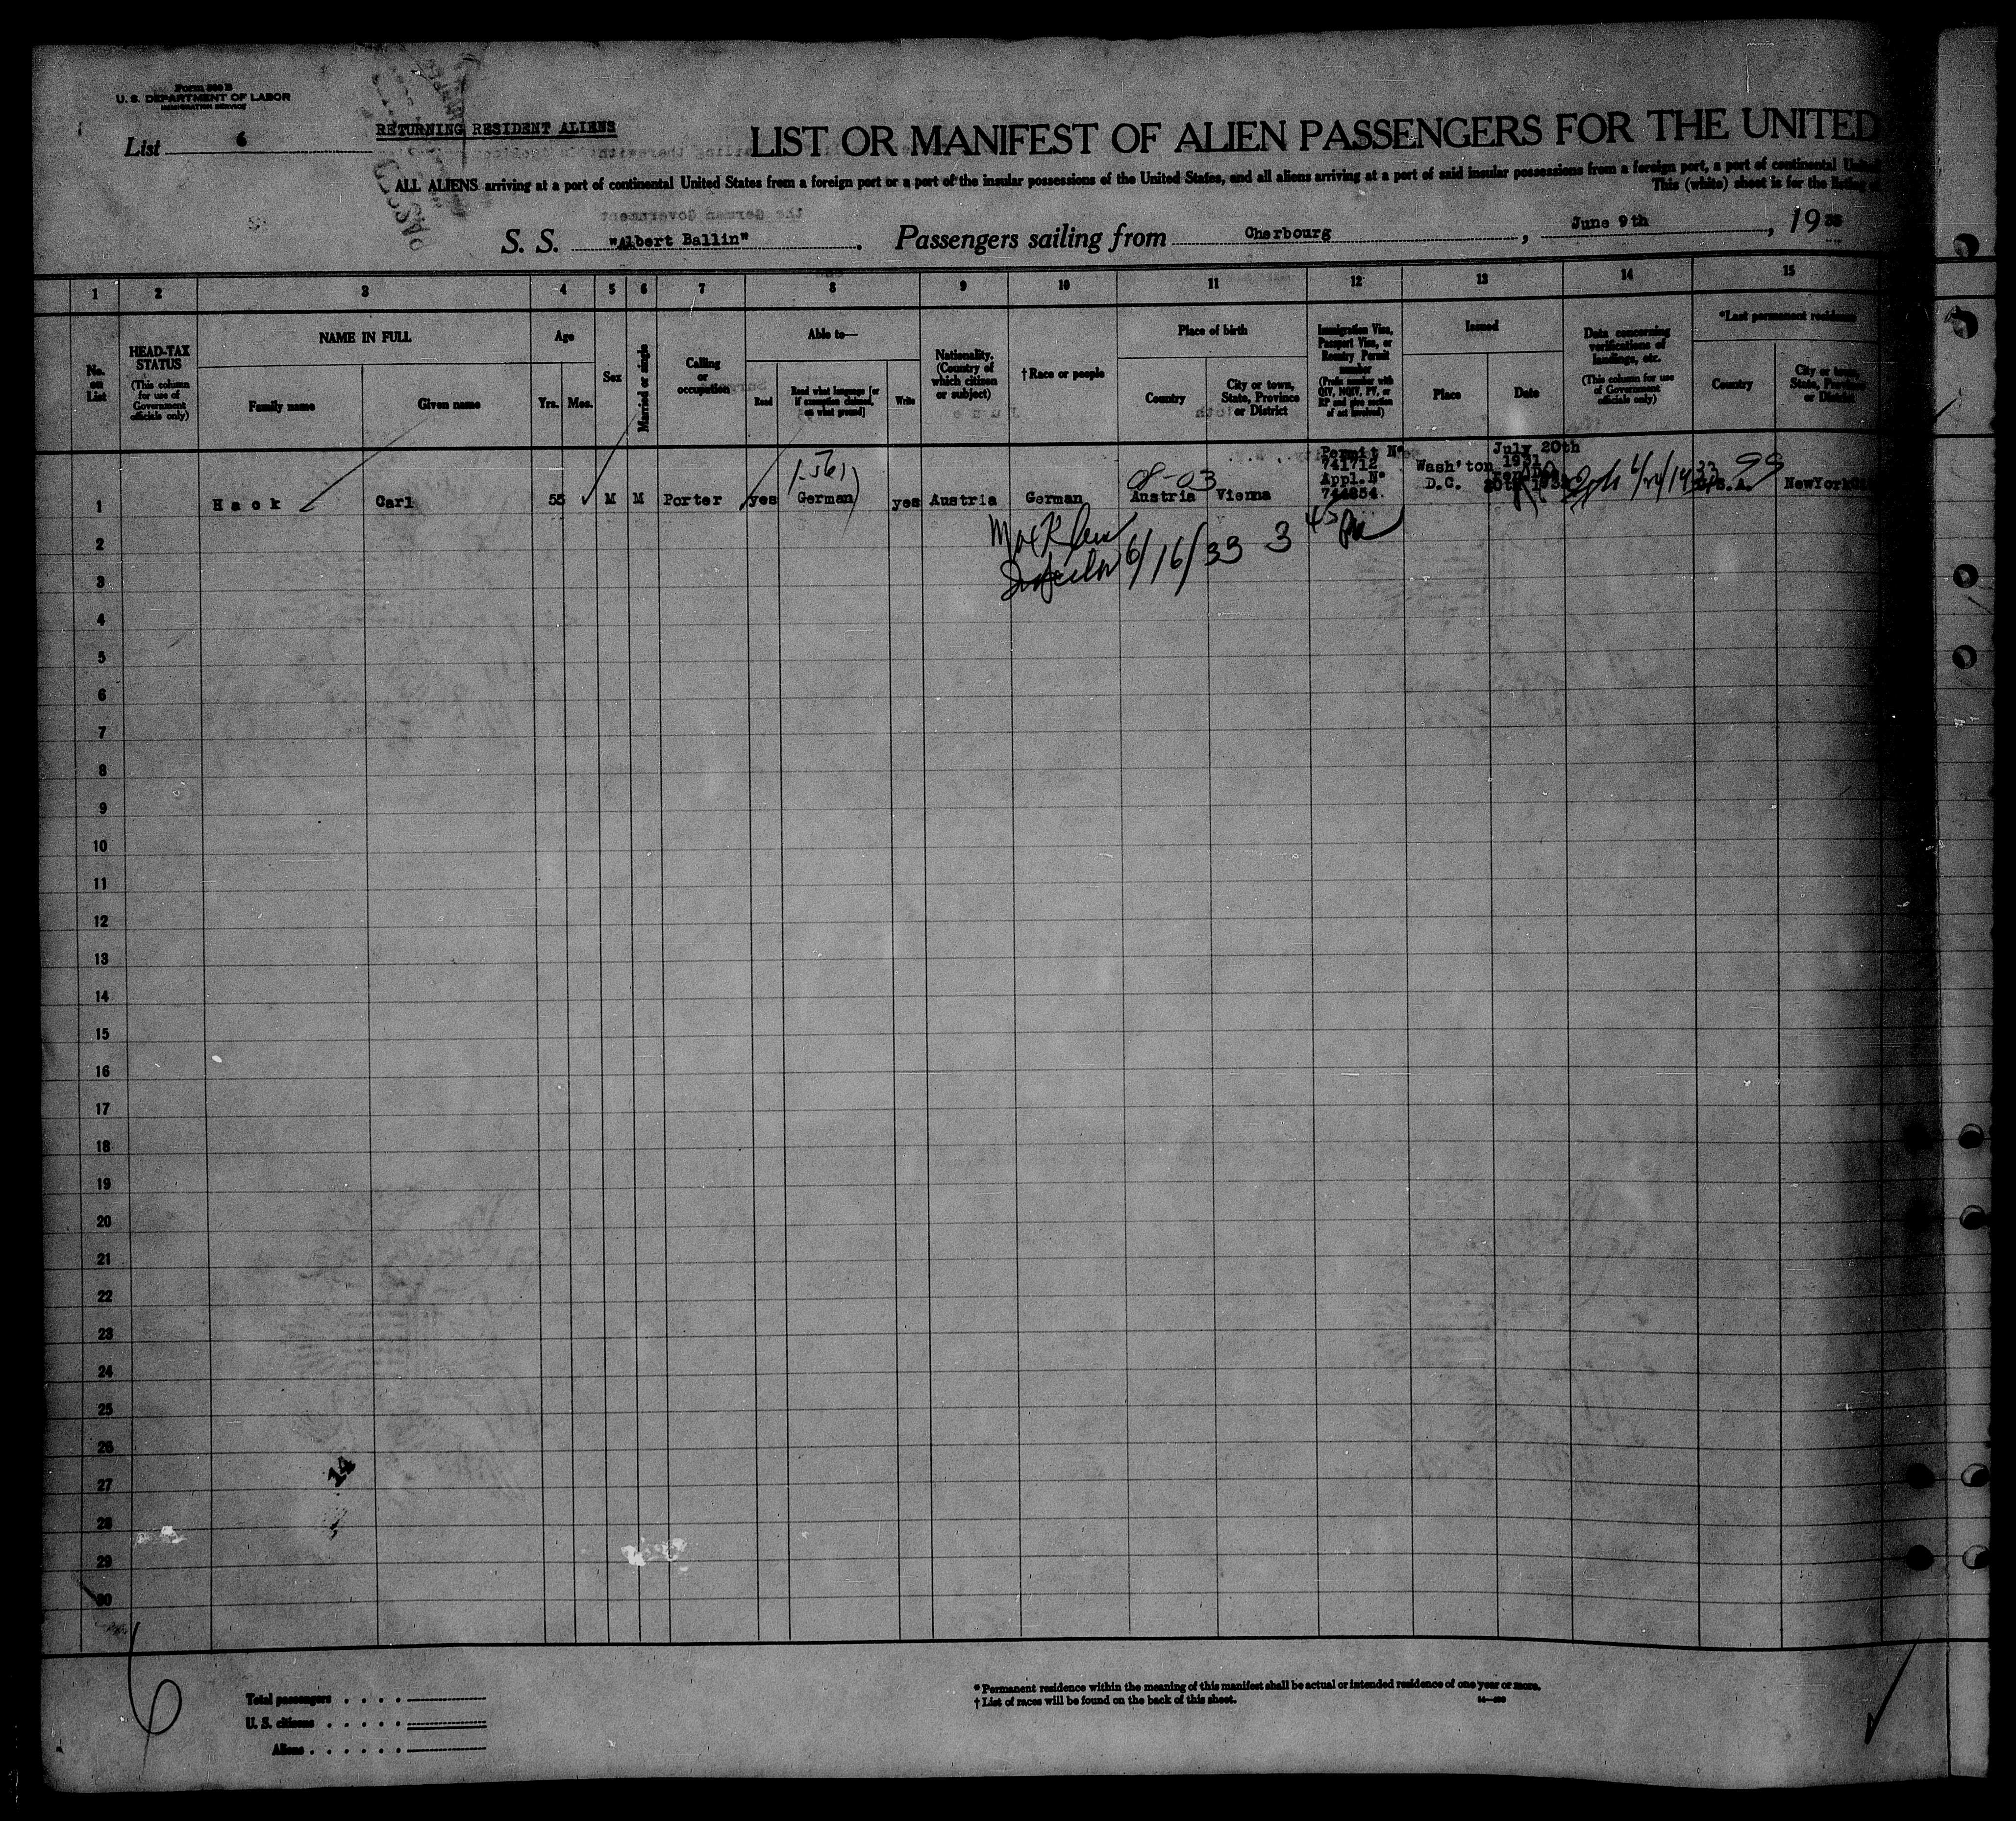 Form 500 B
U. S. DEPARTMENT OF LABOR
IMMIGRATION SERVICE
List 6
RETURNING RESIDENT ALIENS
LIST OR MANIFEST OF ALIEN PASSENGERS FOR THE UNITED
ALL ALIENS arriving at a port of continental United States from a foreign port or a port of the insular possessions of the United States, and all aliens arriving at a port of said insular possessions from a foreign port, a port of continental United
This (white) sheet is for the listing of
S. S. "Albert Ballin". Passengers sailing from Cherbourg, June 9th, 1933
1 2 3 4 5 6 7 8 9 10 11 12 13 14 15
No. on List
HEAD-TAX STATUS
(This column for use of Government officials only)
NAME IN FULL
Family name
Given name
Age
Yrs.
Mos.
Sex
Married or single
Calling or occupation
Able to—
Read
Read what language [or if exemption claimed, on what ground]
Write
Nationality. (Country of which citizen or subject)
†Race or people
Place of birth
Country
City or town, State, Province or District
Immigration Visa, Passport Visa, or Reentry Permit number
(Prefix number with QIV, NQIV, PV, or RP and give section of act involved)
Issued
Place
Date
Data concerning verifications of landings, etc.
(This column for use of Government officials only)
*Last permanent residence
Country
City or town, State, Province or District
1 Hack Carl 55 M M Porter yes German yes Austria German Austria Vienna
Permit Nº
741712
Appl.Nº
744854.
Wash'ton
D.C.
July 20th
1931
U.S.A.
NewYork
08-03
99
6/16/33 3 45 PM
2
3
4
5
6
7
8
9
10
11
12
13
14
15
16
17
18
19
20
21
22
23
24
25
26
27
28
29
30
14
6
Total passengers . . . .
U. S. citizens . . . . .
Aliens . . . . . .
* Permanent residence within the meaning of this manifest shall be actual or intended residence of one year or more.
† List of races will be found on the back of this sheet.